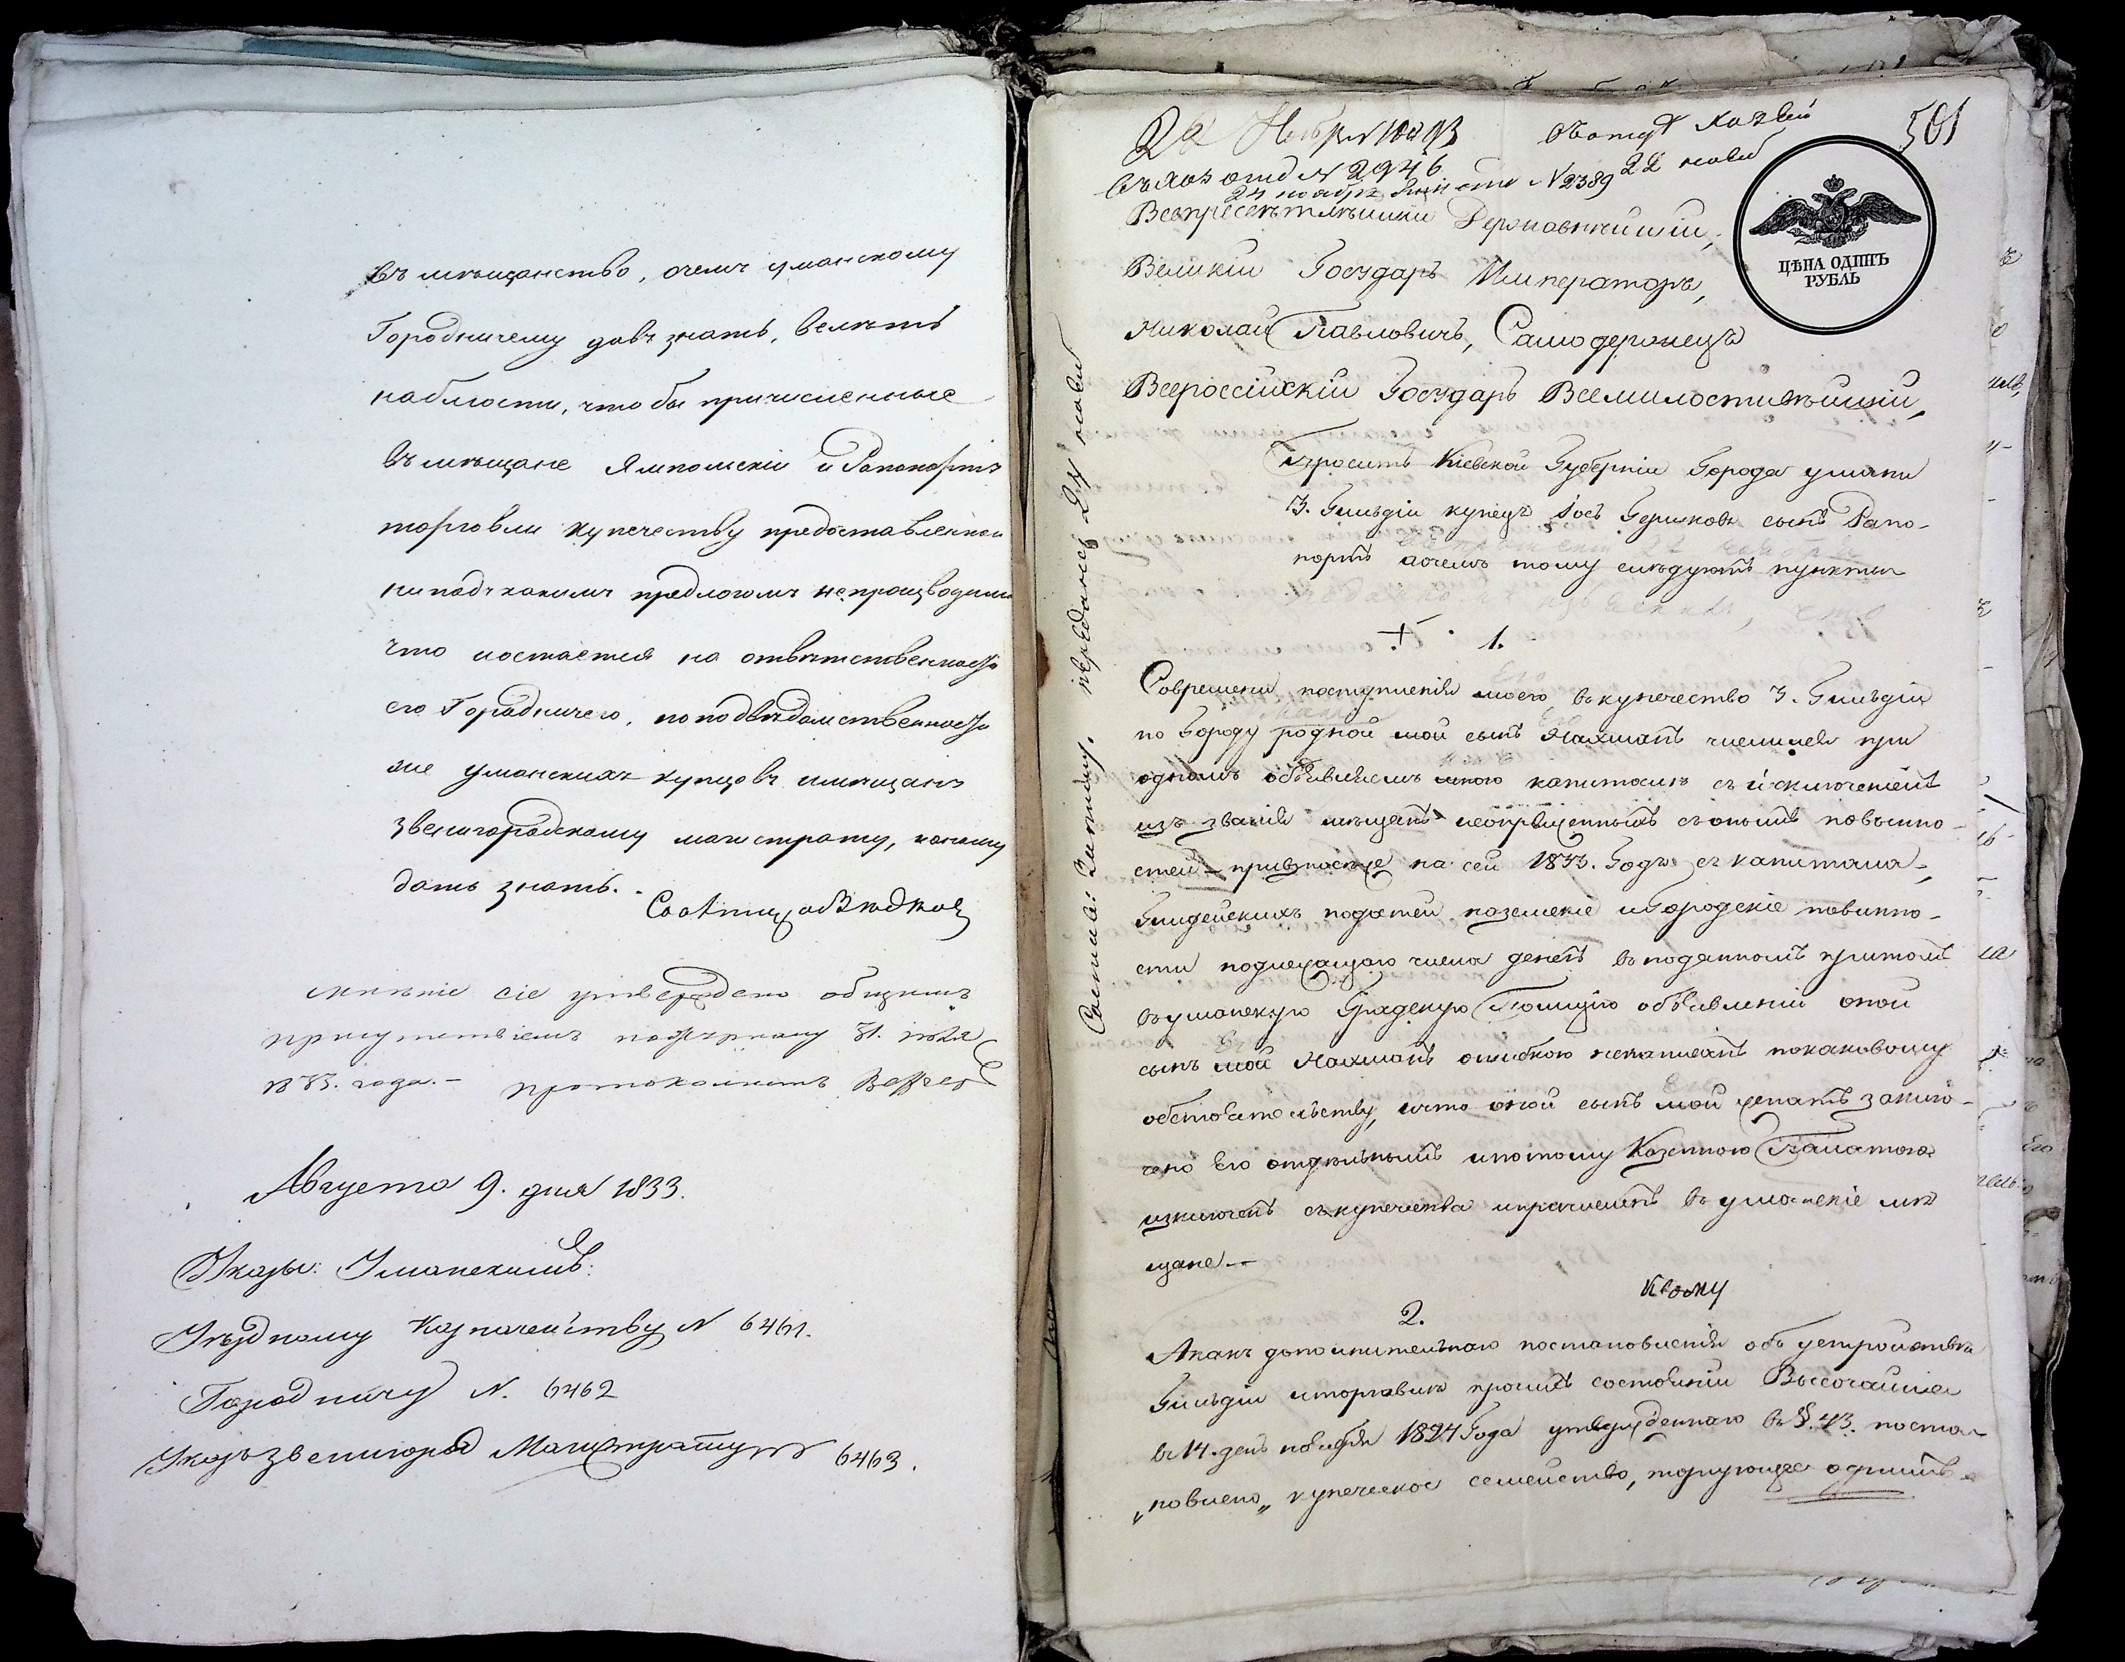 въ мѣщанство, о чемъ уманскому
Городничему давъ знать, велѣть
наблюсти, что бы причисленные
въ мѣщане Ямпольскій и Рапопортъ
торговли купечеству предоставленной
ни подъ какимъ предлогомъ не производили
что и остается на отвѣтственности
его Городничего, по подвѣдомственности
же уманскихъ купцовъ и мѣщанъ
звенигородскому магистрату, какому
дать знать.
Совѣтникъ
мнѣніе сіе утверждено общимъ
присутствіемъ по журналу 31. іюля
1833. года.- протоколистъ
Августа 9. дня 1833.
Указы: Уманскимъ:
Уѣздному Казначейству N 6461.
Городничу N. 6462
Указъ звенигород Магистрату N 6463.
501
22 Ноября 1833
въ отд Хозяй
въ хоз отд N 2946
24 ноября N 2389 22 нояб
ЦѢНА ОДИНЪ
РУБЛЬ
Всепресвѣтлѣйшій Державнѣйшій,
Великій Государь Императоръ,
Николай Павловичъ, Самодержецъ
Всероссійскій Государь Всемилостивѣйшій,
Проситъ Кіевской Губерніи Города умани
3. Гильдіи купецъ Іось Берковъ сынъ Рапо-
портъ а о чемъ тому слѣдуютъ пункты
1.
Современи поступленія моего въ купечество 3. Гильдіи
по Городу родной мой сынъ Нахманъ числился при
одномъ объявляемъ мною капиталѣ съ исключеніемъ
изъ званія мѣщанъ неопрѣщенныхъ съ онымъ повынно-
стей на сей 1833. Годъ съ капитала,
Гилдейскихъ податей земскіе и Городскіе повинно-
сти подлежащого числа денегъ въ поданномъ при томъ
въ уманскую Градскую Полицію объявленіи оной
сынъ мой Нахманъ ошибкою ненаписанъ покаковому
обстоятельству, что оной сынъ мой женатъ заклю-
чено Его отдѣльнымъ и потому Казенною Палатою
изключенъ съ купечества и причисленъ въ уманскіе мѣ
щане.-
к оому
2.
А какъ дополнительнаго постановленія объ устройствѣ
Гильдіи и торговли прочихъ состояніи Высочайше
въ 14. день ноября 1824 Года утвержденнаго въ §. 43. поста-
„новлено„ купеческое семейство, торгующее однимъ
передано 24 нояб